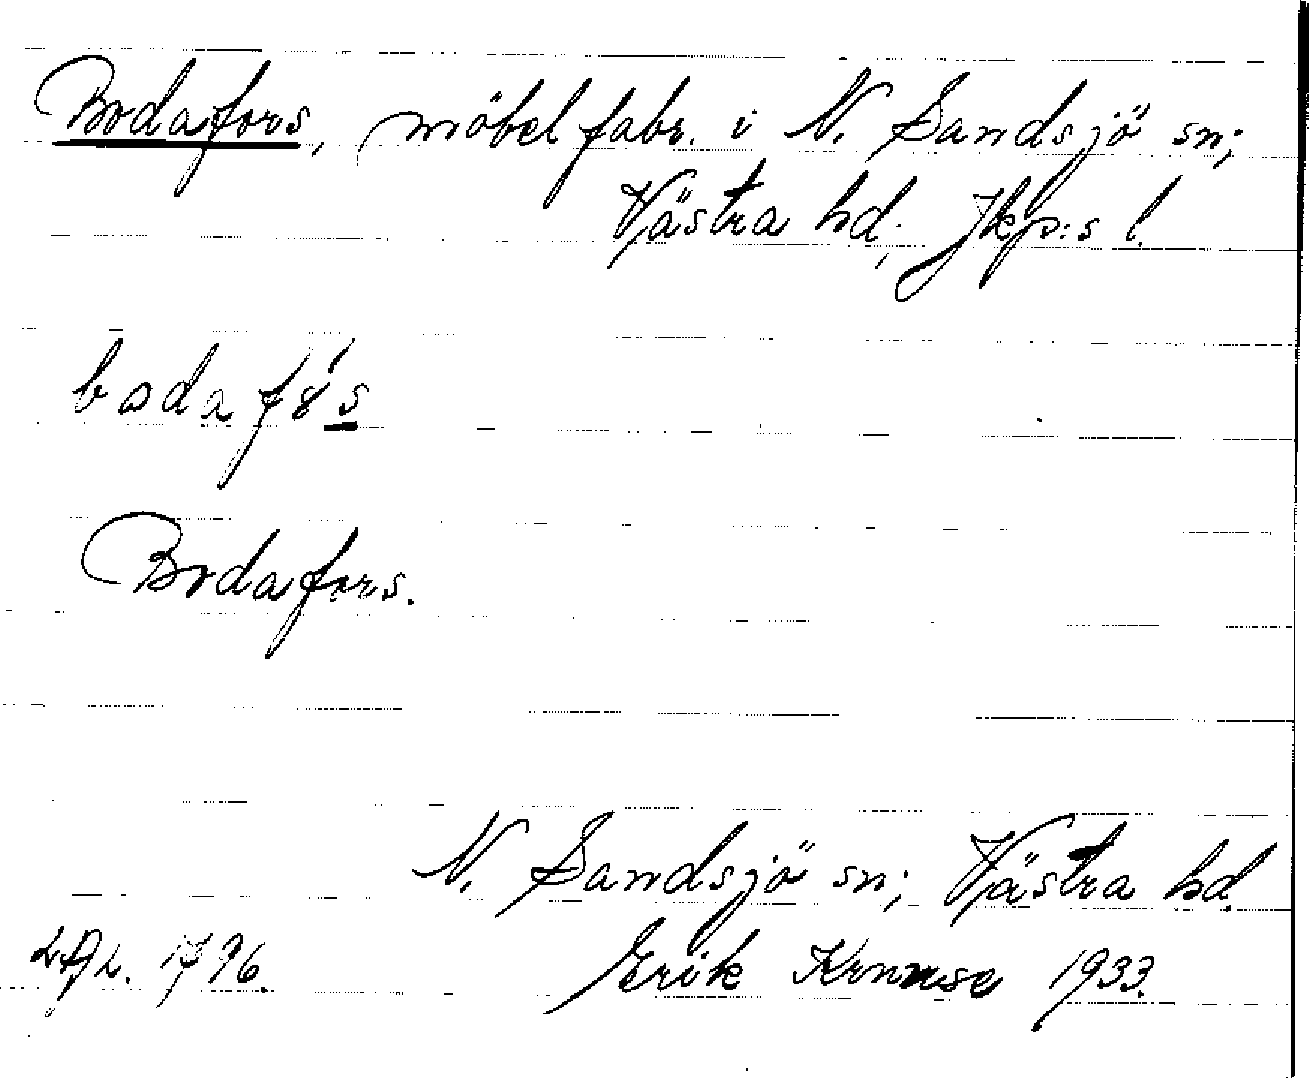 Bodafors, möbelfabr. i N. Sandsjö sn;
Västra hd; Jkp:s l.
Bodafors.
N. Sandsjö sn; Västra hd.
1796.
Erik Kruuse 1933.